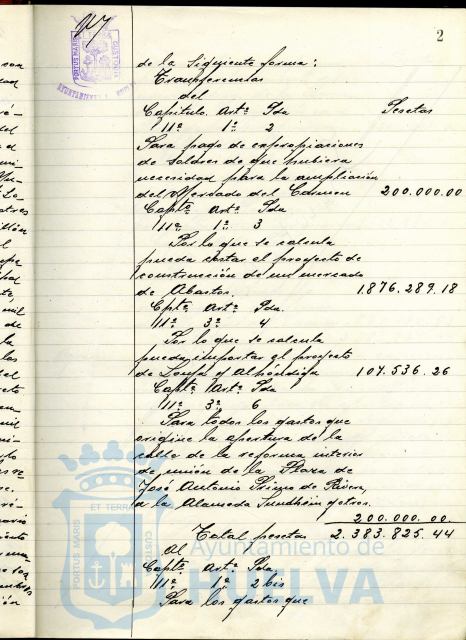 2
PORTUS MARIS
CUSTODIA
AYUNTAMIENTO
de la siguiente forma:
Transferencias
del
Capítulo. Artº Pda Pesetas
11º 1º 2
Para pago de expropiaciones
de solares de que hubiera
necesidad para la ampliación
del Mercado del Carmen 200.000.00
Captº Artº Pda
11º 1º 3
Por lo que se calcula
pueda costar el proyecto de
construcción de un mercado
de Abastos. 1.876.289.18
Cptº Artº Pda.
11º 3º 4
Por lo que se calcula
pueda importar el proyecto
de Lonja y Alhóndiga 107.536.26
Captº Artº Pda
11º 3º 6
Para todos los gastos que
origine la apertura de la
calle de la reforma interior
de unión de la Plaza de
José Antonio Primo de Rivera,
a la Alameda Sundheim y otros.
200.000.00
Total pesetas 2.383.825.44
Al
Captº Artº Pda.
11º 1º 2 bis
Para los gastos que
PORTUS MARIS
ET TERRAE
CUSTODIA
Ayuntamiento de
HUELVA